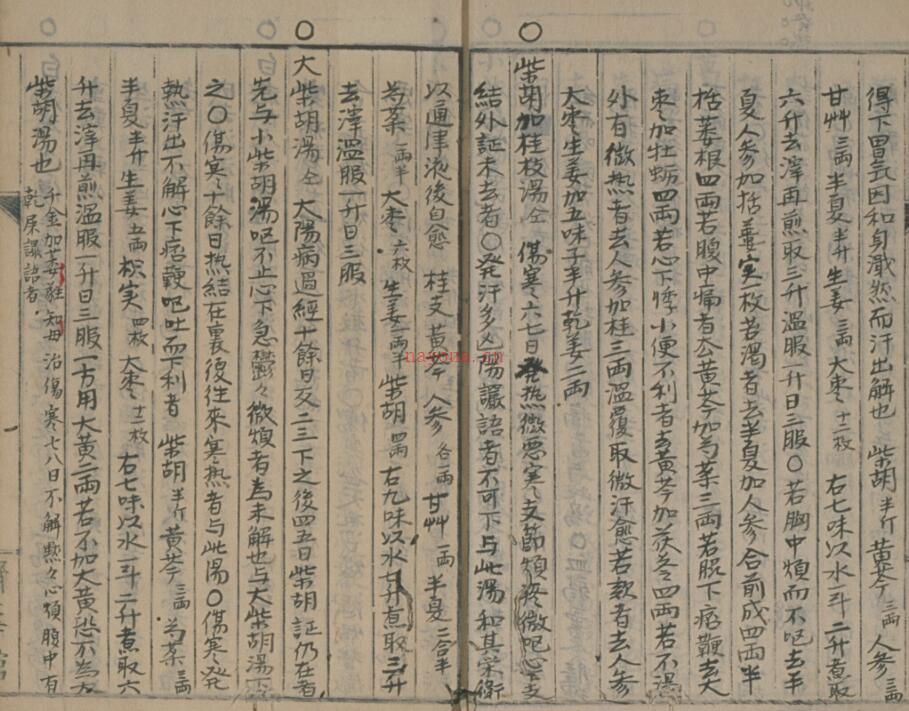 得下胃気因和身濈然而汗出解也 柴胡半斤 黄芩三両 人参三両
甘艸三両 半夏半升 生姜三両 大枣十二枚 右七味以水一斗二升煮取
六升去滓再煎取三升温服一升日三服〇若胸中煩而不呕去半
夏人参加括蒌实一枚若渴者去半夏加人参合前成四両半
括蒌根四両若腹中痛者去黄芩加芍薬三両若脇下痞鞕去大
枣加牡蛎四両若心下悸小便不利者去黄芩加茯苓四両若不渴
外有微热者去人参加桂三両温覆取微汗愈若欬者去人参
大枣生姜加五味子半升乾姜二両
〇柴胡加桂枝湯仝 傷寒六七日発热微恶寒支節煩疼微呕心下支
結外証未去者〇発汗多亡陽讝語者不可下与此湯和其栄衛
以通津液後自愈 桂支 黄芩 人参各一両 甘艸一両 半夏二合半
芍薬一両半 大枣六枚 生姜一両半 柴胡四両 右九味以水七升煮取三升
去滓温服一升日三服
〇大柴胡湯仝 大陽病過經十餘日反二三下之後四五日柴胡証仍在者
先与小柴胡湯呕不止心下急鬱々微煩者為未解也与大柴胡湯下
之〇傷寒十餘日热結在裏復往來寒热者与此湯〇傷寒発
热汗出不解心下痞鞕呕吐而下利者 柴胡半斤 黄芩三両 芍薬三両
半夏半升 生姜五両 枳实四枚 大枣十二枚 右七味以水一斗二升煮取六
升去滓再煎温服一升日三服一方用大黄二両若不加大黄恐不為大
柴胡湯也 千金加萎蕤知母治傷寒七八日不解黙々心煩腹中有
乾屎讝語者
nayona.cn